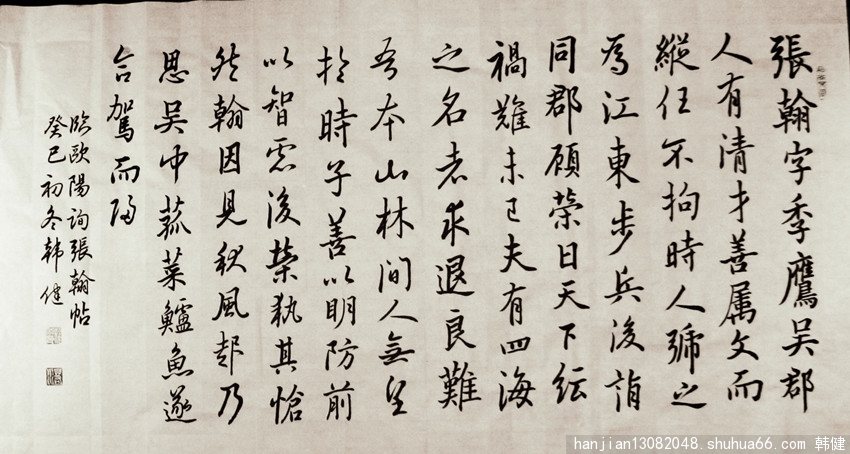 張翰字季鷹吳郡
人有清才善属文而
縱任不拘時人號之
為江東步兵後謂
同郡顧榮曰天下紜
禍難未已夫有四海
之名者求退良難
吾本山林間人無望
於時子善以明防前
以智慮後榮執其愴
然翰因見秋風起乃
思吳中菰菜鱸魚遂
命駕而歸
臨歐陽詢張翰帖
癸巳初冬韩健
hanjian13082048.shuhua66.com 韩健